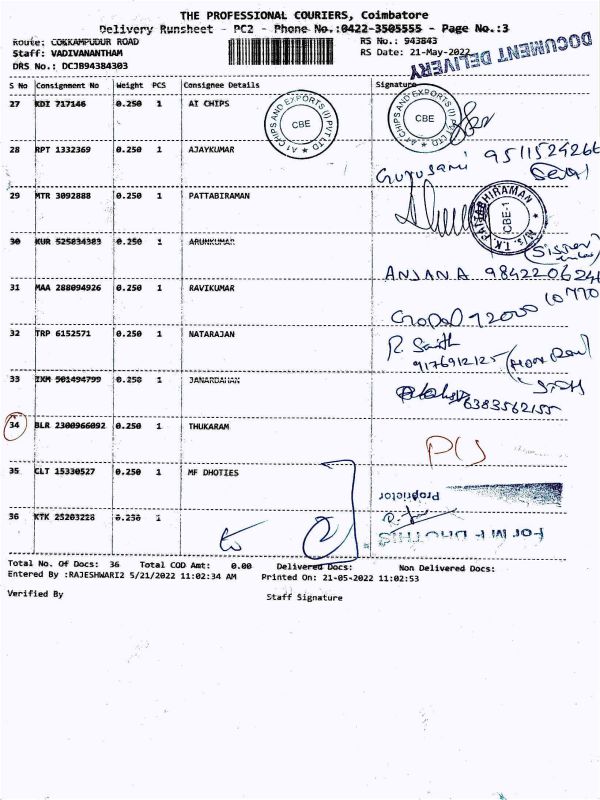 THE PROFESSIONAL COURIERS, Coimbatore
Delivery Runsheet - PC2 - Phone No.:0422-3505555 - Page No.:3
Route: COKKAMPUDUR ROAD RS No.: 943843
Staff: VADIVANANTHAM RS Date: 21-May-2022
DRS No.: DCJB94384303
DOCUMENT DELIVERY
S No Consignment No Weight PCS Consignee Details Signature
27 KDI 717146 0.250 1 AI CHIPS
A1 CHIPS AND EXPORTS (I) PVT LTD ★ CBE
A1 CHIPS AND EXPORTS (I) PVT LTD ★ CBE
28 RPT 1332369 0.250 1 AJAYKUMAR
Gurusami 9511524266
29 MTR 3092888 0.250 1 PATTABIRAMAN
M/s. T.K. PATTABHIRAMAN ★ CBE-1
30 KUR 525834383 0.250 1 ARUNKUMAR
(Sister
ANJANA 9842206246
31 MAA 288094926 0.250 1 RAVIKUMAR
10770
Gopal 92000
32 TRP 6152571 0.250 1 NATARAJAN
R. Smith
9176912125
33 IXM 501494799 0.250 1 JANARDAHAN
6383562155
34 BLR 2300966092 0.250 1 THUKARAM
35 CLT 15330527 0.250 1 MF DHOTIES
Proprietor
36 KTK 25203228 0.250 1
For M F DHOTHIS
Total No. Of Docs: 36 Total COD Amt: 0.00 Delivered Docs: Non Delivered Docs:
Entered By :RAJESHWARI2 5/21/2022 11:02:34 AM Printed On: 21-05-2022 11:02:53
Verified By Staff Signature